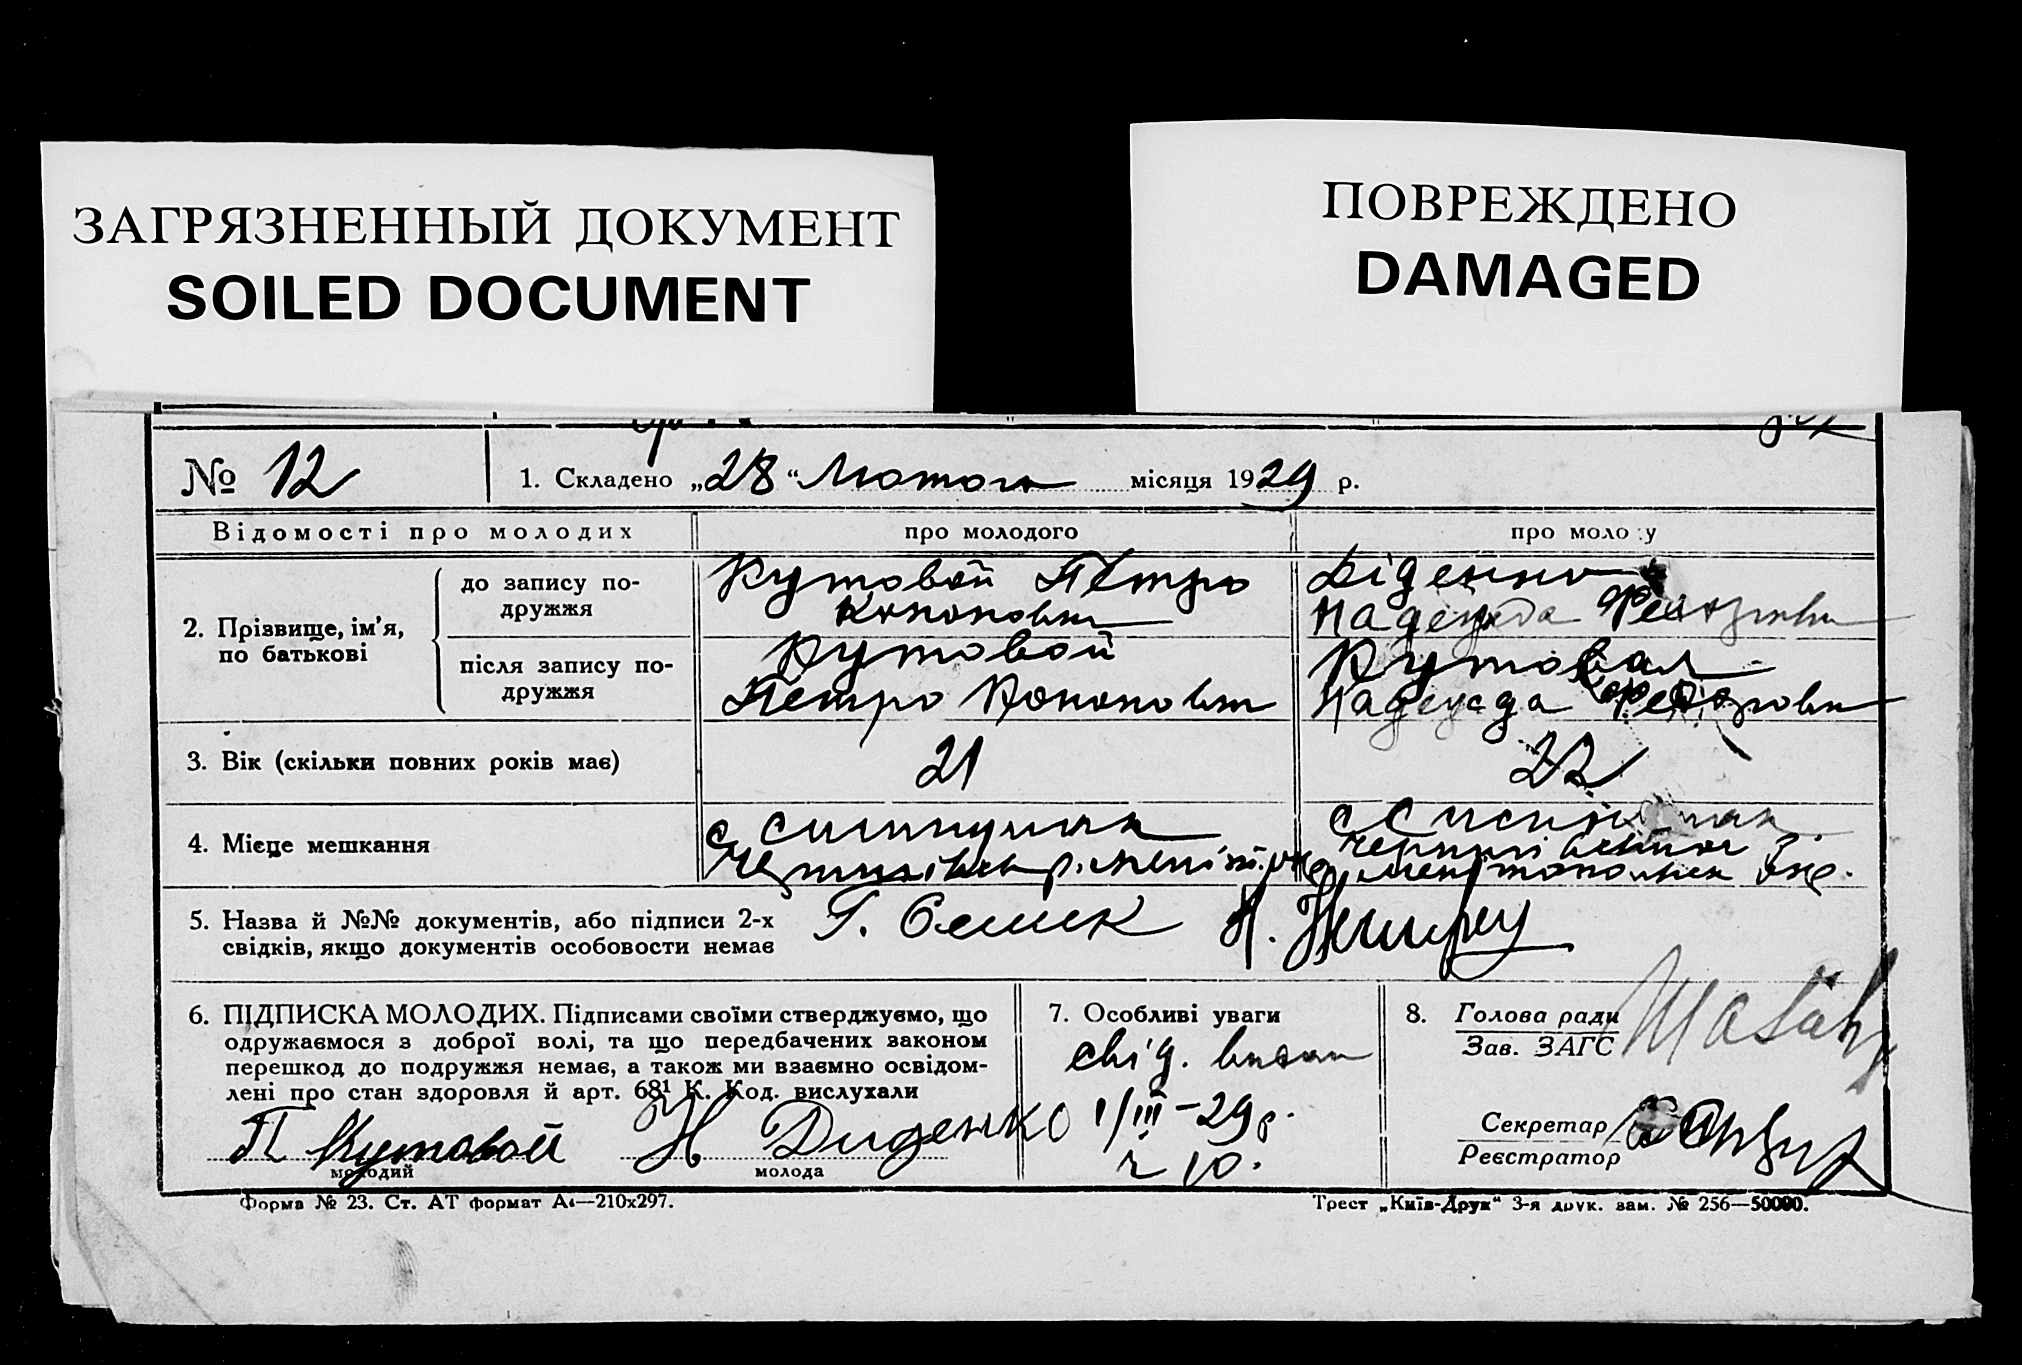 ЗАГРЯЗНЕННЫЙ ДОКУМЕНТ
SOILED DOCUMENT
ПОВРЕЖДЕНО
DAMAGED
№ 12
1. Складено „28“ Лютого місяця 1929 р.
Відомості про молодих
про молодого
про моло у
2. Прізвище, ім’я, по батькові
до запису по-
дружжя
Кутовой Петро
Кононович
Діденко
Надежда
після запису по-
дружжя
Кутовой
Петро Кононович
Кутовая
Надежда
3. Вік (скільки повних років має)
21
22
4. Місце мешкання
с
с
5. Назва й №№ документів, або підписи 2-х
свідків, якщо документів особовости немає
Г.
Н.
6. ПІДПИСКА МОЛОДИХ. Підписами своїми стверджуємо, що
одружаємося з доброї волі, та що передбачених законом
перешкод до подружжя немає, а також ми взаємно освідом-
лені про стан здоровля й арт. 68¹ К. Код. вислухали
П Кутовой
молодий
Н Диденко
молода
7. Особливі уваги
свід. видан
1/III-29р.
ч 10.
8. Голова ради
Зав. ЗАГС
Секретар
Реєстратор
Форма № 23. Ст. АТ формат А4—210x297.
Трест „Київ-Друк“ 3-я друк. зам. № 256—50000.